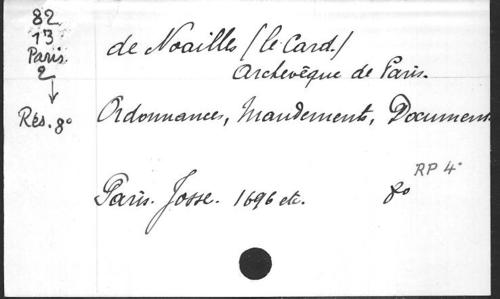 82
13
Paris.
2
↓
Rés. 8º
de Noailles (le Card.)
Archevêque de Paris.
Ordonnances, Mandements, Documents
Paris. Josse. 1696 etc. 8º
RP 4º